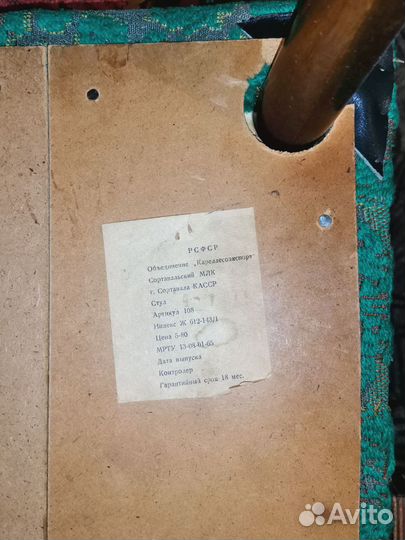 РСФСР
Объединение „Кареллесоэкспорт"
Сортавальский МЛК
г. Сортавала КАССР
Стул
Артикул 108
Индекс Ж 612-143/1
Цена 5-80
МРТУ 13-08-01-65
Дата выпуска
Контролер
Гарантийный срок 18 мес.
Avito